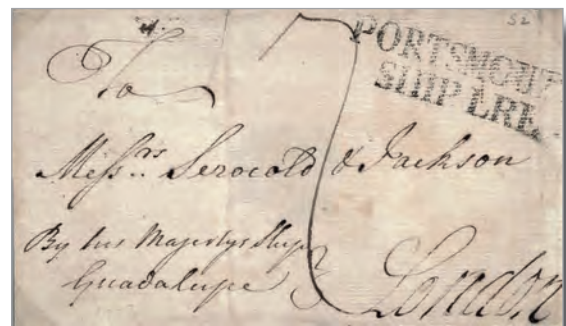 52
PORTSMOUT
SHIP LRE
To
Messrs. Serocold & Jackson
By his Majestys Ship
Guadalupe
London